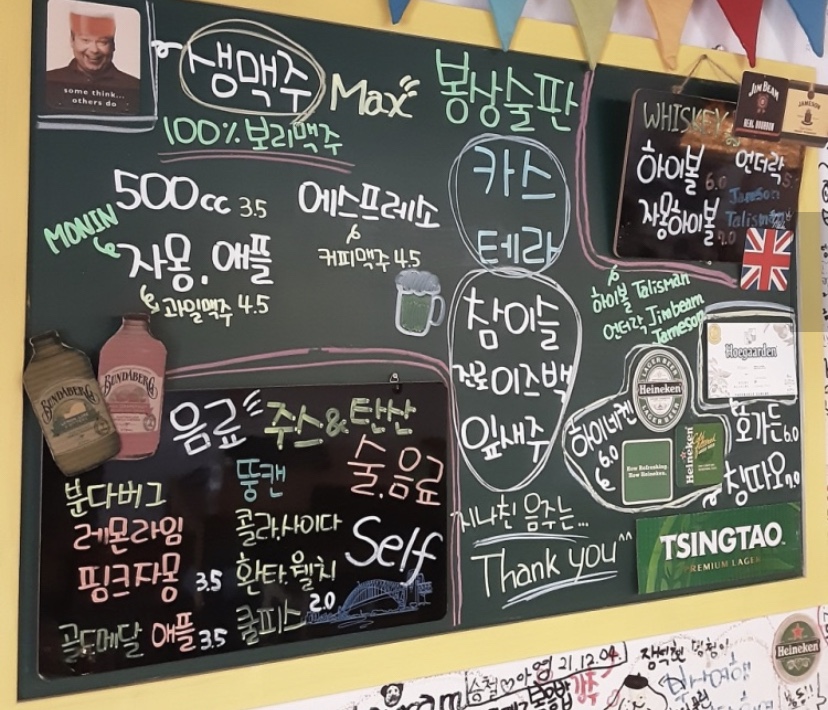 some think...
others do
생맥주 Max
100% 보리맥주
500cc 3.5
MONIN
자몽.애플
과일맥주 4.5
에스프레소
커피맥주 4.5
봉상술판
카스
테라
참이슬
진로이즈백
잎새주
지나친 음주는...
Thank you^^
WHISKEY
하이볼 6.0
언더락
Jameson
자몽하이볼 7.0
Talisman
JIM BEAM
REAL BOURBON
JAMESON
하이볼 Talisman
언더락 Jimbeam
Jameson
Hoegaarden
호가든 6.0
하이네켄
6.0
LAGER BEER
Heineken
LAGER BEER
Now Refreshing.
New Heineken.
Heineken
칭따오 7.0
TSINGTAO
PREMIUM LAGER
BUNDABERG
BUNDABERG
음료 주스&탄산
술.음료
Self
분다버그
레몬라임
핑크자몽 3.5
골드메달 애플 3.5
뚱캔
콜라.사이다
환타.웰치
쿨피스 2.0
승철♡아영 21.12.04
Heineken